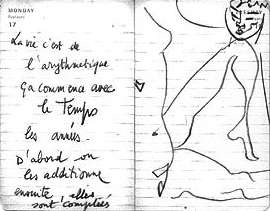 MONDAY
February
17
La vie c'est de
l'arythmetique
ça commence avec
le Temps
les années
D'abord on
les additionne
ensuite elles
sont comptées